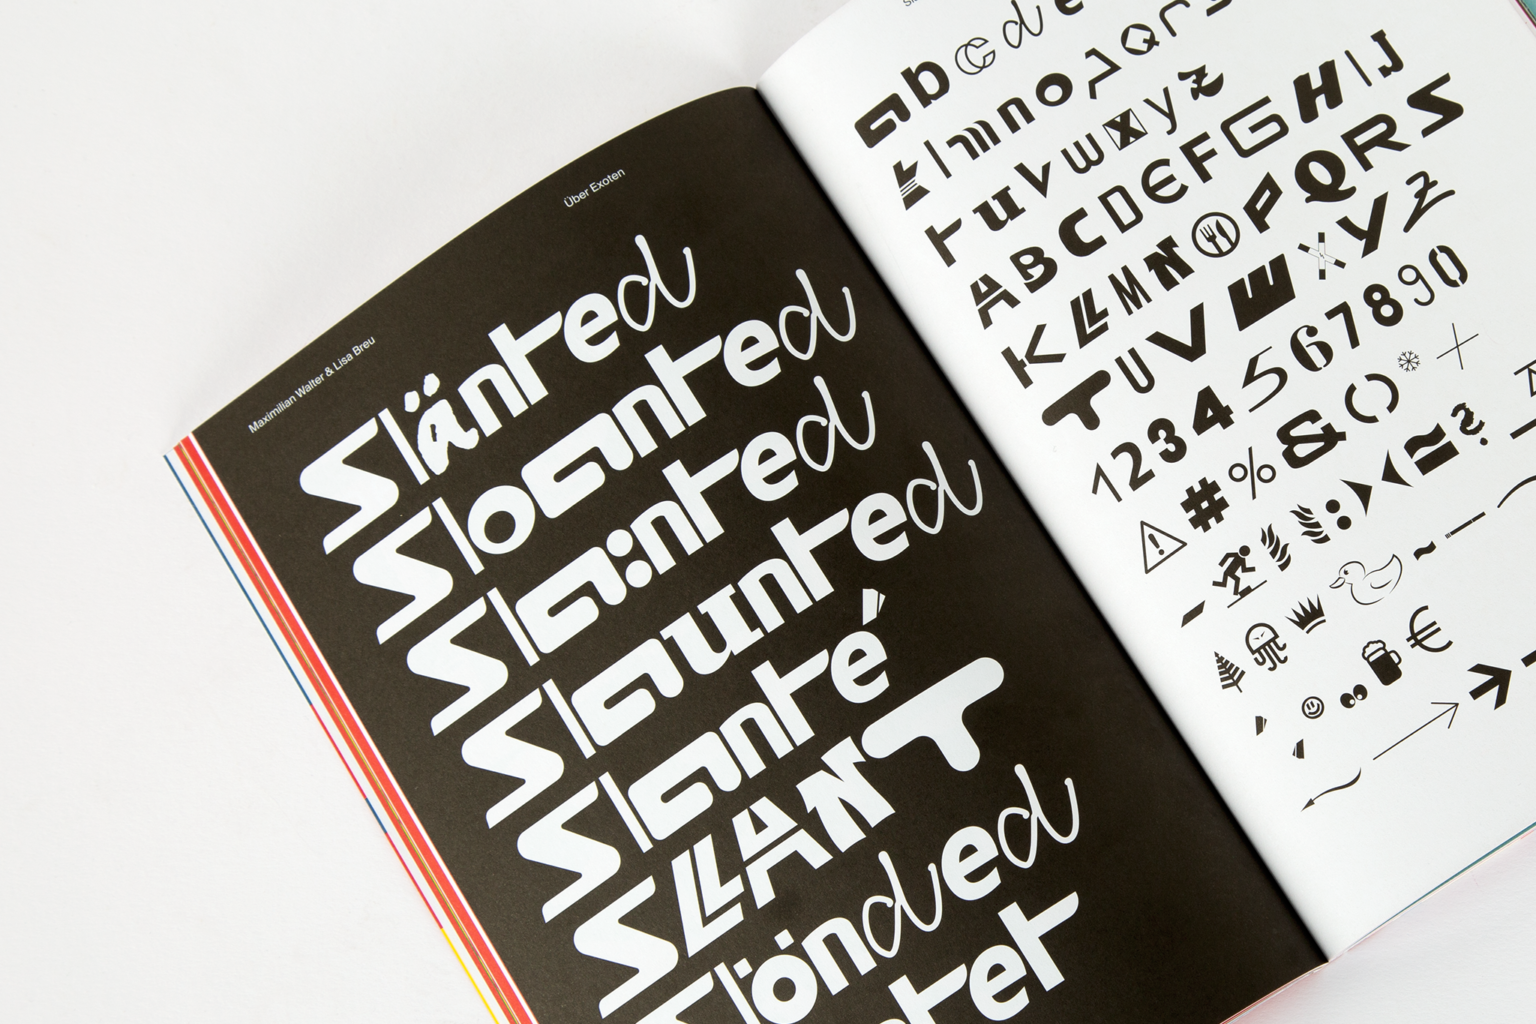 Maximilian Walter & Lisa Breu
Über Exoten
Slänted
Slocanted
Sla:nted
Slaunted
Slanté
SLLANT
Slönded
ter
a b c d e
k l m n o
r u v w x y z
A B C D E F G H I J
K LL M N P Q R S
T U V W X Y Z
1 2 3 4 5 6 7 8 9 0
# % & ( )
:
~
€